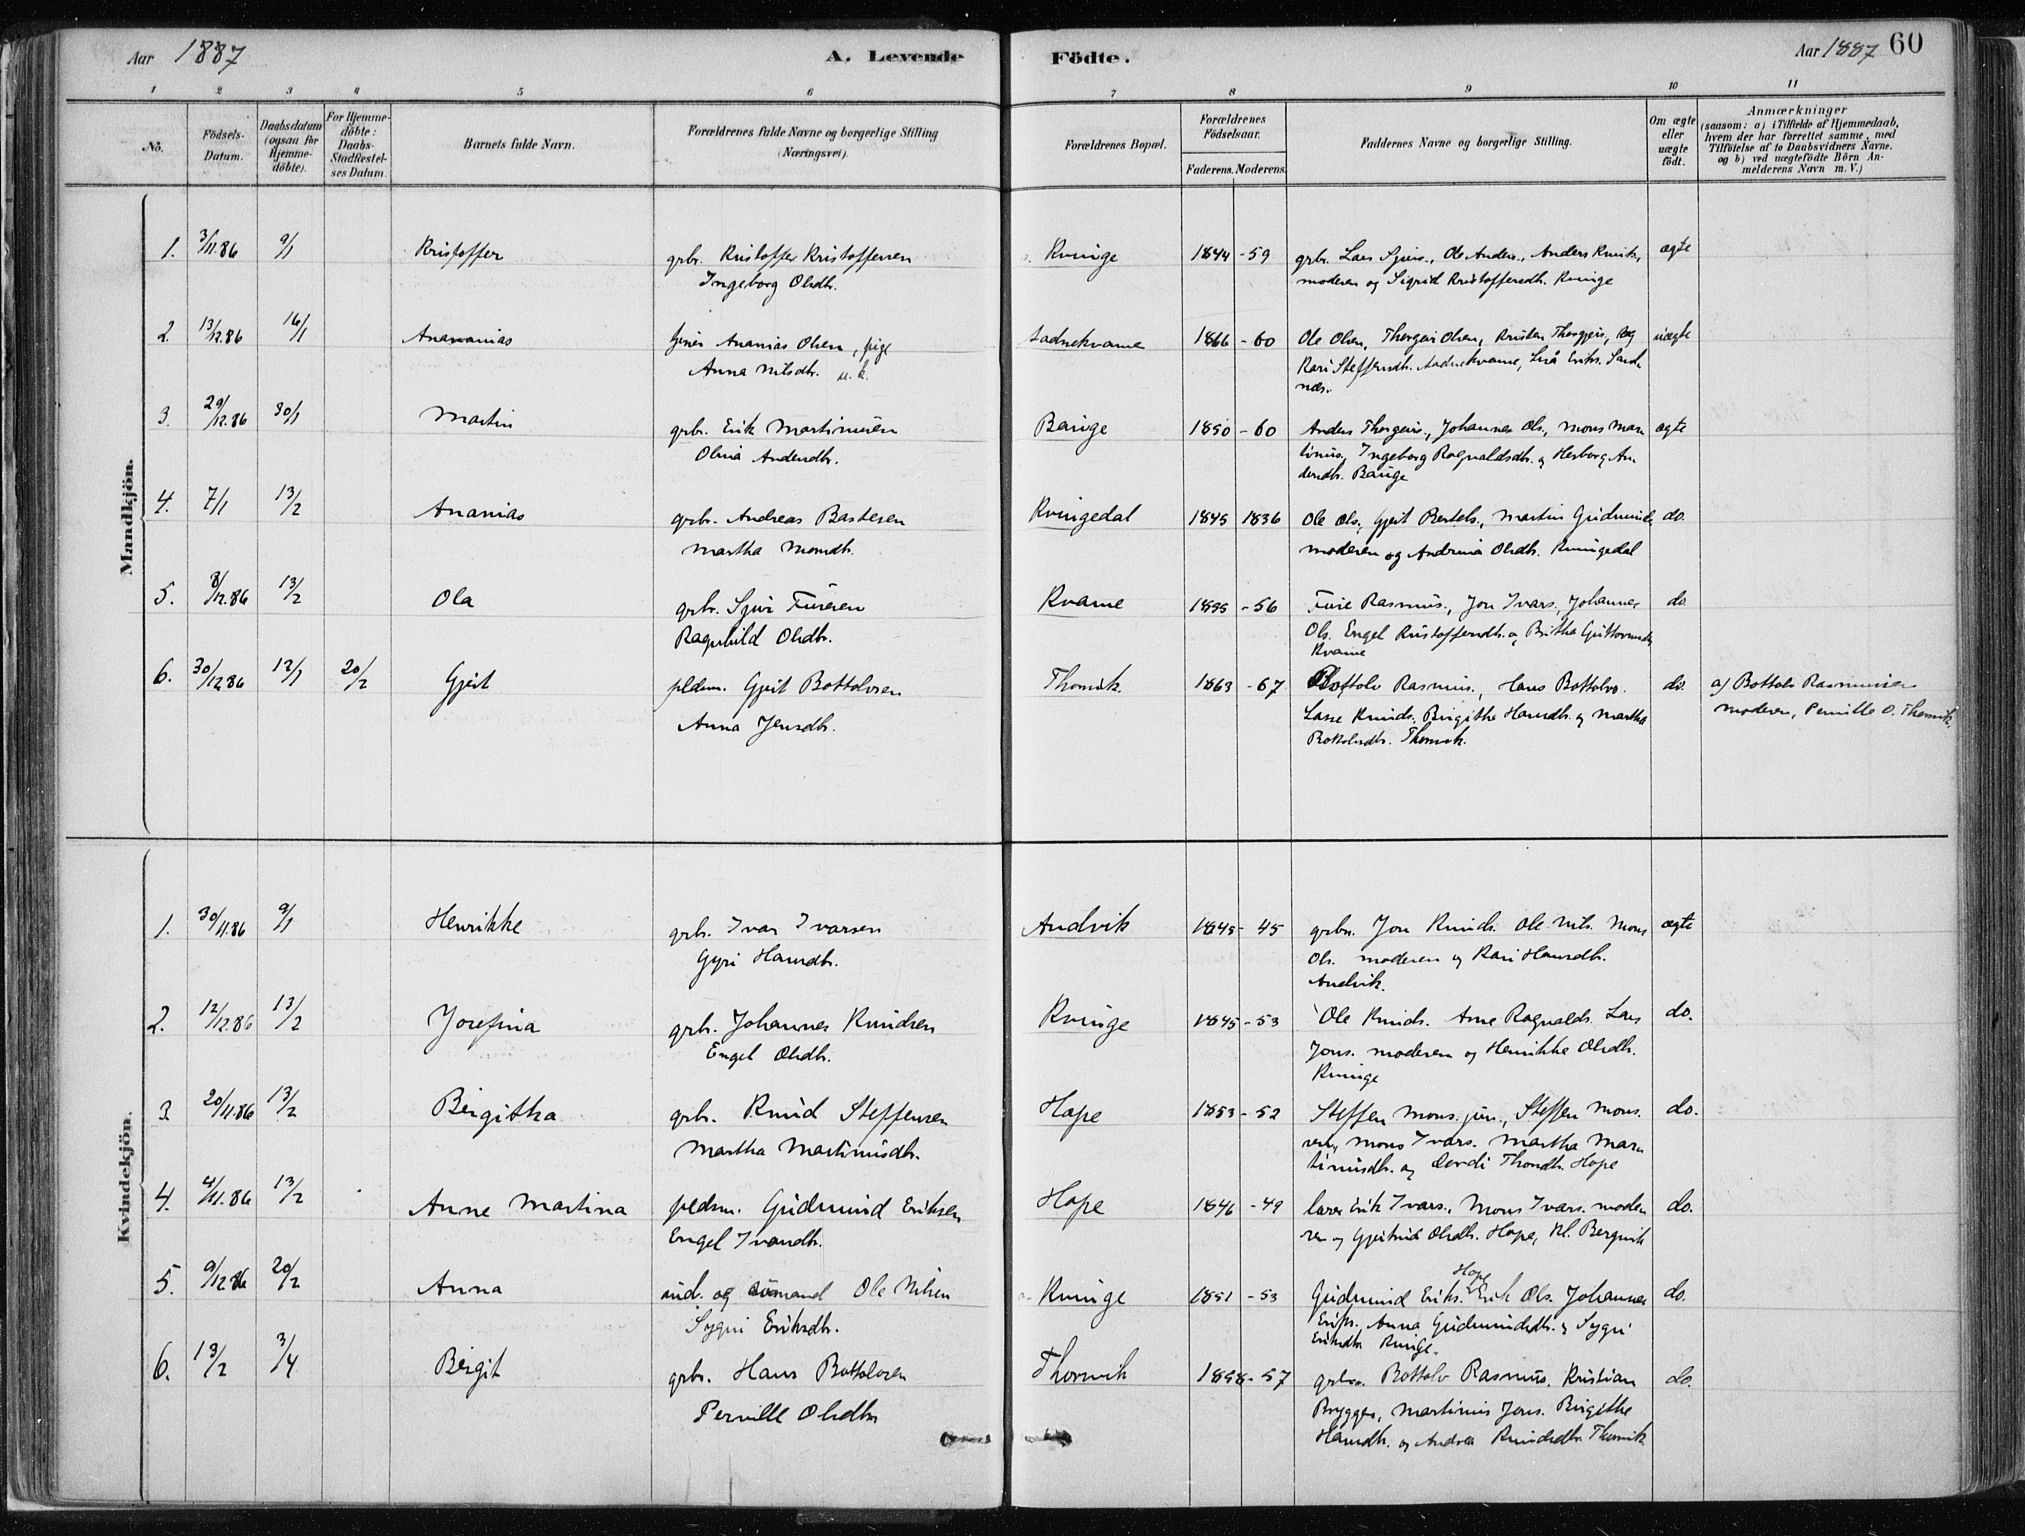 Aar 1887 A. Levende Födte. Aar 1887 60
1 2 3 4 5 6 7 8 9 10 11
No. Födsels-Datum. Daabsdatum (ogsaa for Hjemmedöbte). For Hjemmedöbte: Daabs-Stadfæstelses Datum. Barnets fulde Navn. Forældrenes fulde Navne og borgerlige Stilling (Næringsvei). Forældrenes Bopæl. Forældrenes Födselsaar. Faderens. Moderens. Faddernes Navne og borgerlige Stilling. Om ægte eller uægte födt. Anmærkninger (saasom: a) i Tilfælde af Hjemmedaab, hvem der har forrettet samme, med Tilföielse af to Daabsvidners Navne. og b) ved uægtefödte Börn Anmelderens Navn m. V.)
Mandkjön.
1. 3/11.86 9/1 Kristoffer grbr. Kristoffer Kristoffersen Kvinge 1844 - 59 grbr. Lars Sjurs., Ole Anders., Anders Knuts, ægte
Ingeborg Olsdtr. moderen og Sigrid Kristoffersdtr. Kvinge
2. 13/12.86 16/1 Ananias tjener Ananias Olsen, pige Aadnekvame 1866 - 60 Ole Olsen, Thorgeir Olsen, Kristen Thorgeirs, uægte
Anna Nilsdtr. u. k. Kari Steffensdtr. Aadnekvame, Eriks. Sand-
næs.
3. 29/12.86 30/1 Martin grbr. Erik Martinusen Bauge 1850 - 60 Anders Thorgeirs., Johannes Ols., Mons Mar- ægte
Olina Andersdtr. tinus., Ingeborg Ragnaldsdtr. og Herborg An-
dersdtr. Bauge
4. 7/1 13/2 Ananias grbr. Andreas Bastesen Kvingedal 1845 1836 Ole Ols., Gjert Bertels., Martin Gudmunds, do.
Martha Monsdtr. moderen og Andrina Olsdtr. Kvingedal
5. 8/12.86 13/2 Ola grbr. Sjur Furesen Kvame 1855 - 56 Fure Rasmus., Jon Ivars., Johannes do.
Ragnhild Olsdtr. Ols. Engel Kristoffersdtr. og Britha Guttormsdtr.
Kvame
6. 30/12.86 12/1 20/2 Gjert pldsm. Gjert Bottolvsen Thorsvik. 1863 - 67 Bottolv Rasmus., Hans Bottolvs. do. a) Bottolv Rasmussen
Anna Jensdtr. Lasse Knuds. Birgithe Hansdtr. og Martha moderen, Pernille O. Thorsvik.
Bottolvsdtr. Thorsvik.
Kvindekjön.
1. 30/11.86 9/1 Henrikke grbr. Ivar Ivarsen Andvik 1845 - 45 grbr. Jon Knuds. Ole Nils. Mons ægte
Gyri Hansdtr. Ols. moderen og Kari Hansdtr.
Andvik.
2. 12/12.86 13/2 Josefina grbr. Johannes Knudsen Kvinge 1845 - 53 Ole Knuds. Arne Ragnalds. Lars do.
Engel Olsdtr. Jons. moderen og Henrikke Olsdtr.
Kvinge
3. 20/11.86 13/2 Birgitha grbr. Knud Steffensen Hope 1853 - 52 Steffen Mons. jun., Steffen Mons. do.
Martha Martinusdtr. Mons Ivars. Martha Mar-
tinusdtr. og Thorsdtr. Hope
4. 4/11.86 13/2 Anne Martina pldsm. Gudmund Eriksen Hope 1846 - 49 lærer Erik Ivars., Mons Ivars. mode- do.
Engel Ivarsdtr. ren og Gjertrud Olsdtr. Hope, Kl. Bergsvik
5. 9/12.86 20/2 Anna ind. og Ole Nilsen Kvinge 1851 - 53 Gudmund Eriks. Hope Erik Ols. Johannes do.
Sygni Eriksdtr. Eriks., Anna Gudmundsdtr. og Sygni
Eriksdtr. Kvinge.
6. 13/2 3/4 Birgit grbr. Hans Bottolvsen Thorsvik 1858 - 57 grbr. Bottolv Rasmus. Kristian do.
Pernille Olsdtr. Brygger, Martinus Jons. Birgithe
Hansdtr. og Andrea Knudsdtr. Thorsvik.